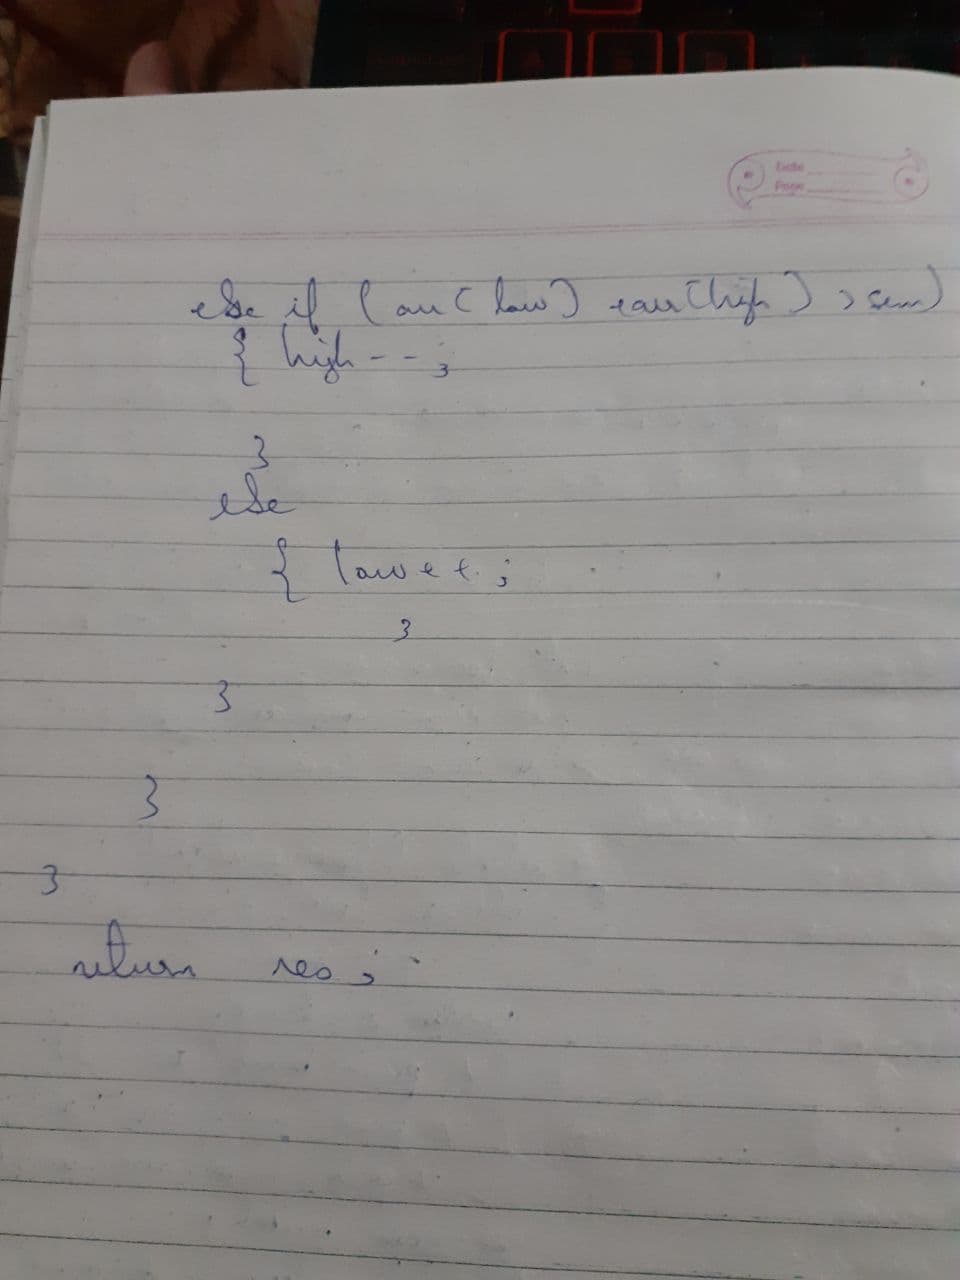 Date
Page
else if (arr[low] + arr[high] > sum)
{ high--;
}
else
{ low++;
}
}
}
}
return res;